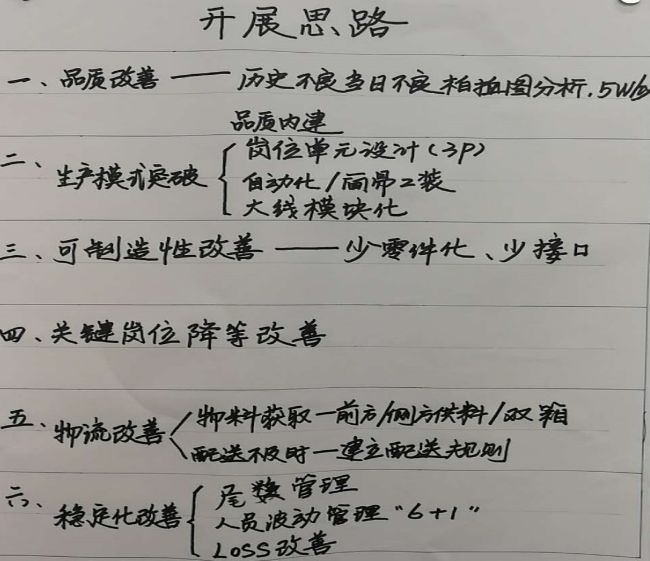 开展思路
一、品质改善 —— 历史不良当日不良柏拉图分析.5W/
品质内建
二、生产模式突破
岗位单元设计(3P)
自动化/简易工装
大线模块化
三、可制造性改善 —— 少零件化、少接口
四、关键岗位降等改善
五、物流改善
物料获取—前方/侧方供料/双箱
配送不及时—建立配送规则
六、稳定化改善
尾数管理
人员波动管理“6+1”
LOSS改善